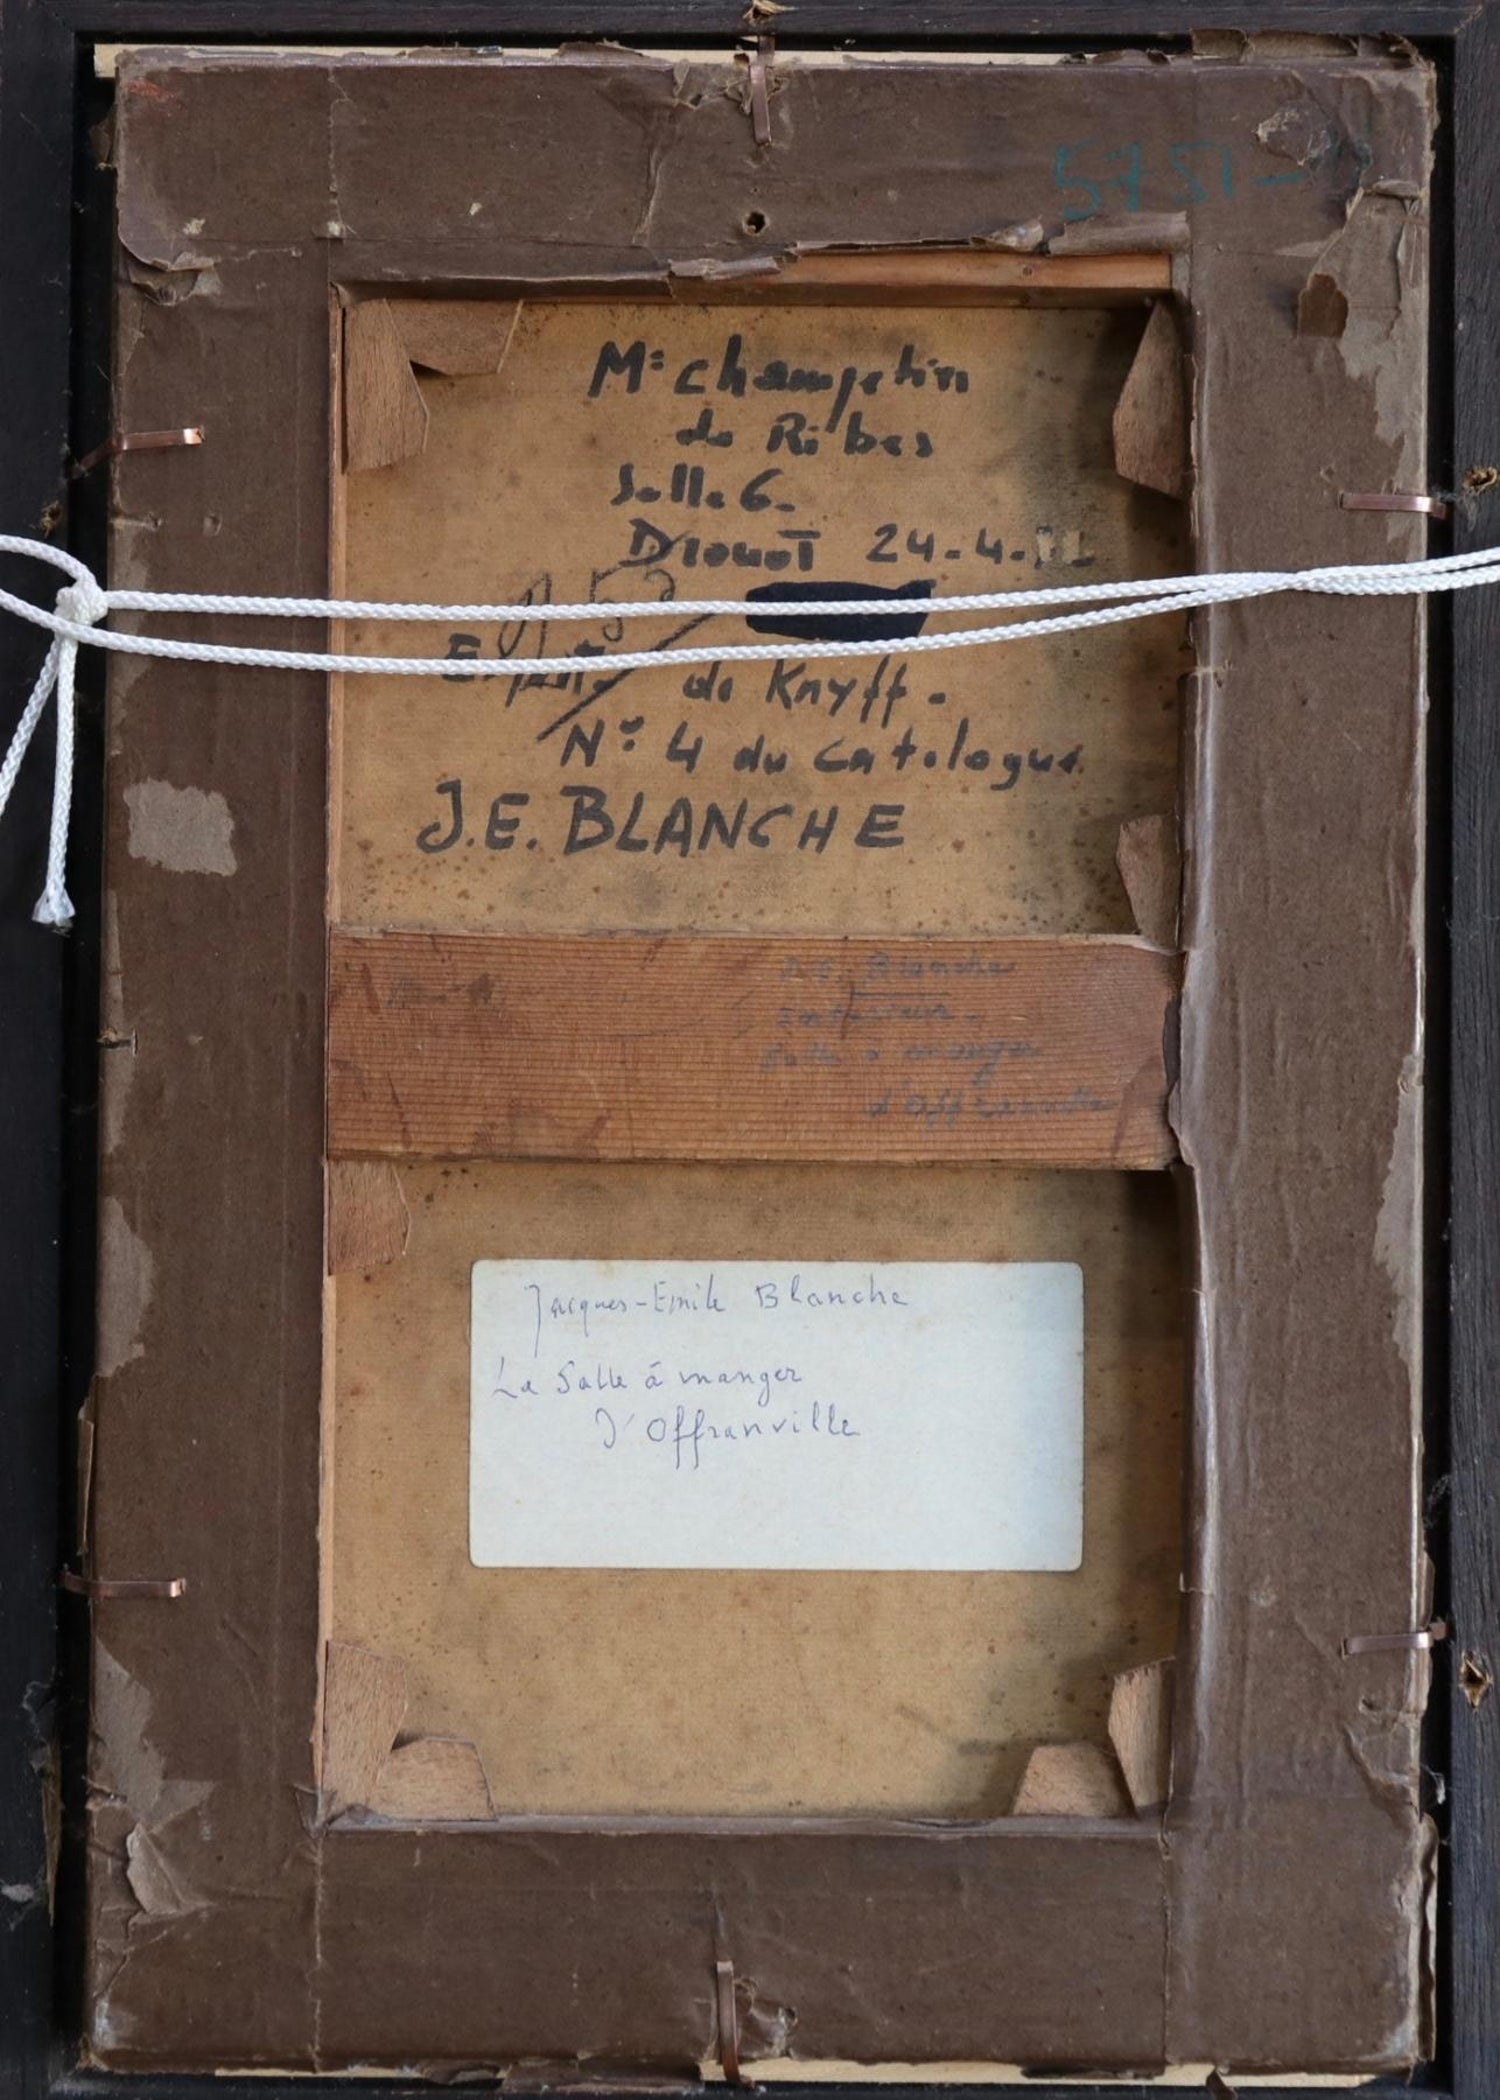 5751-
Me: champetin
de Ribes
Salle 6.
Drouot 24-4-
N° 53
Expert. de Knyff.
N° 4 du catalogue
J.E. BLANCHE
J.E. Blanche
Intérieur.
Salle à manger
d'Offranville
Jacques-Emile Blanche
La Salle à manger
d'Offranville